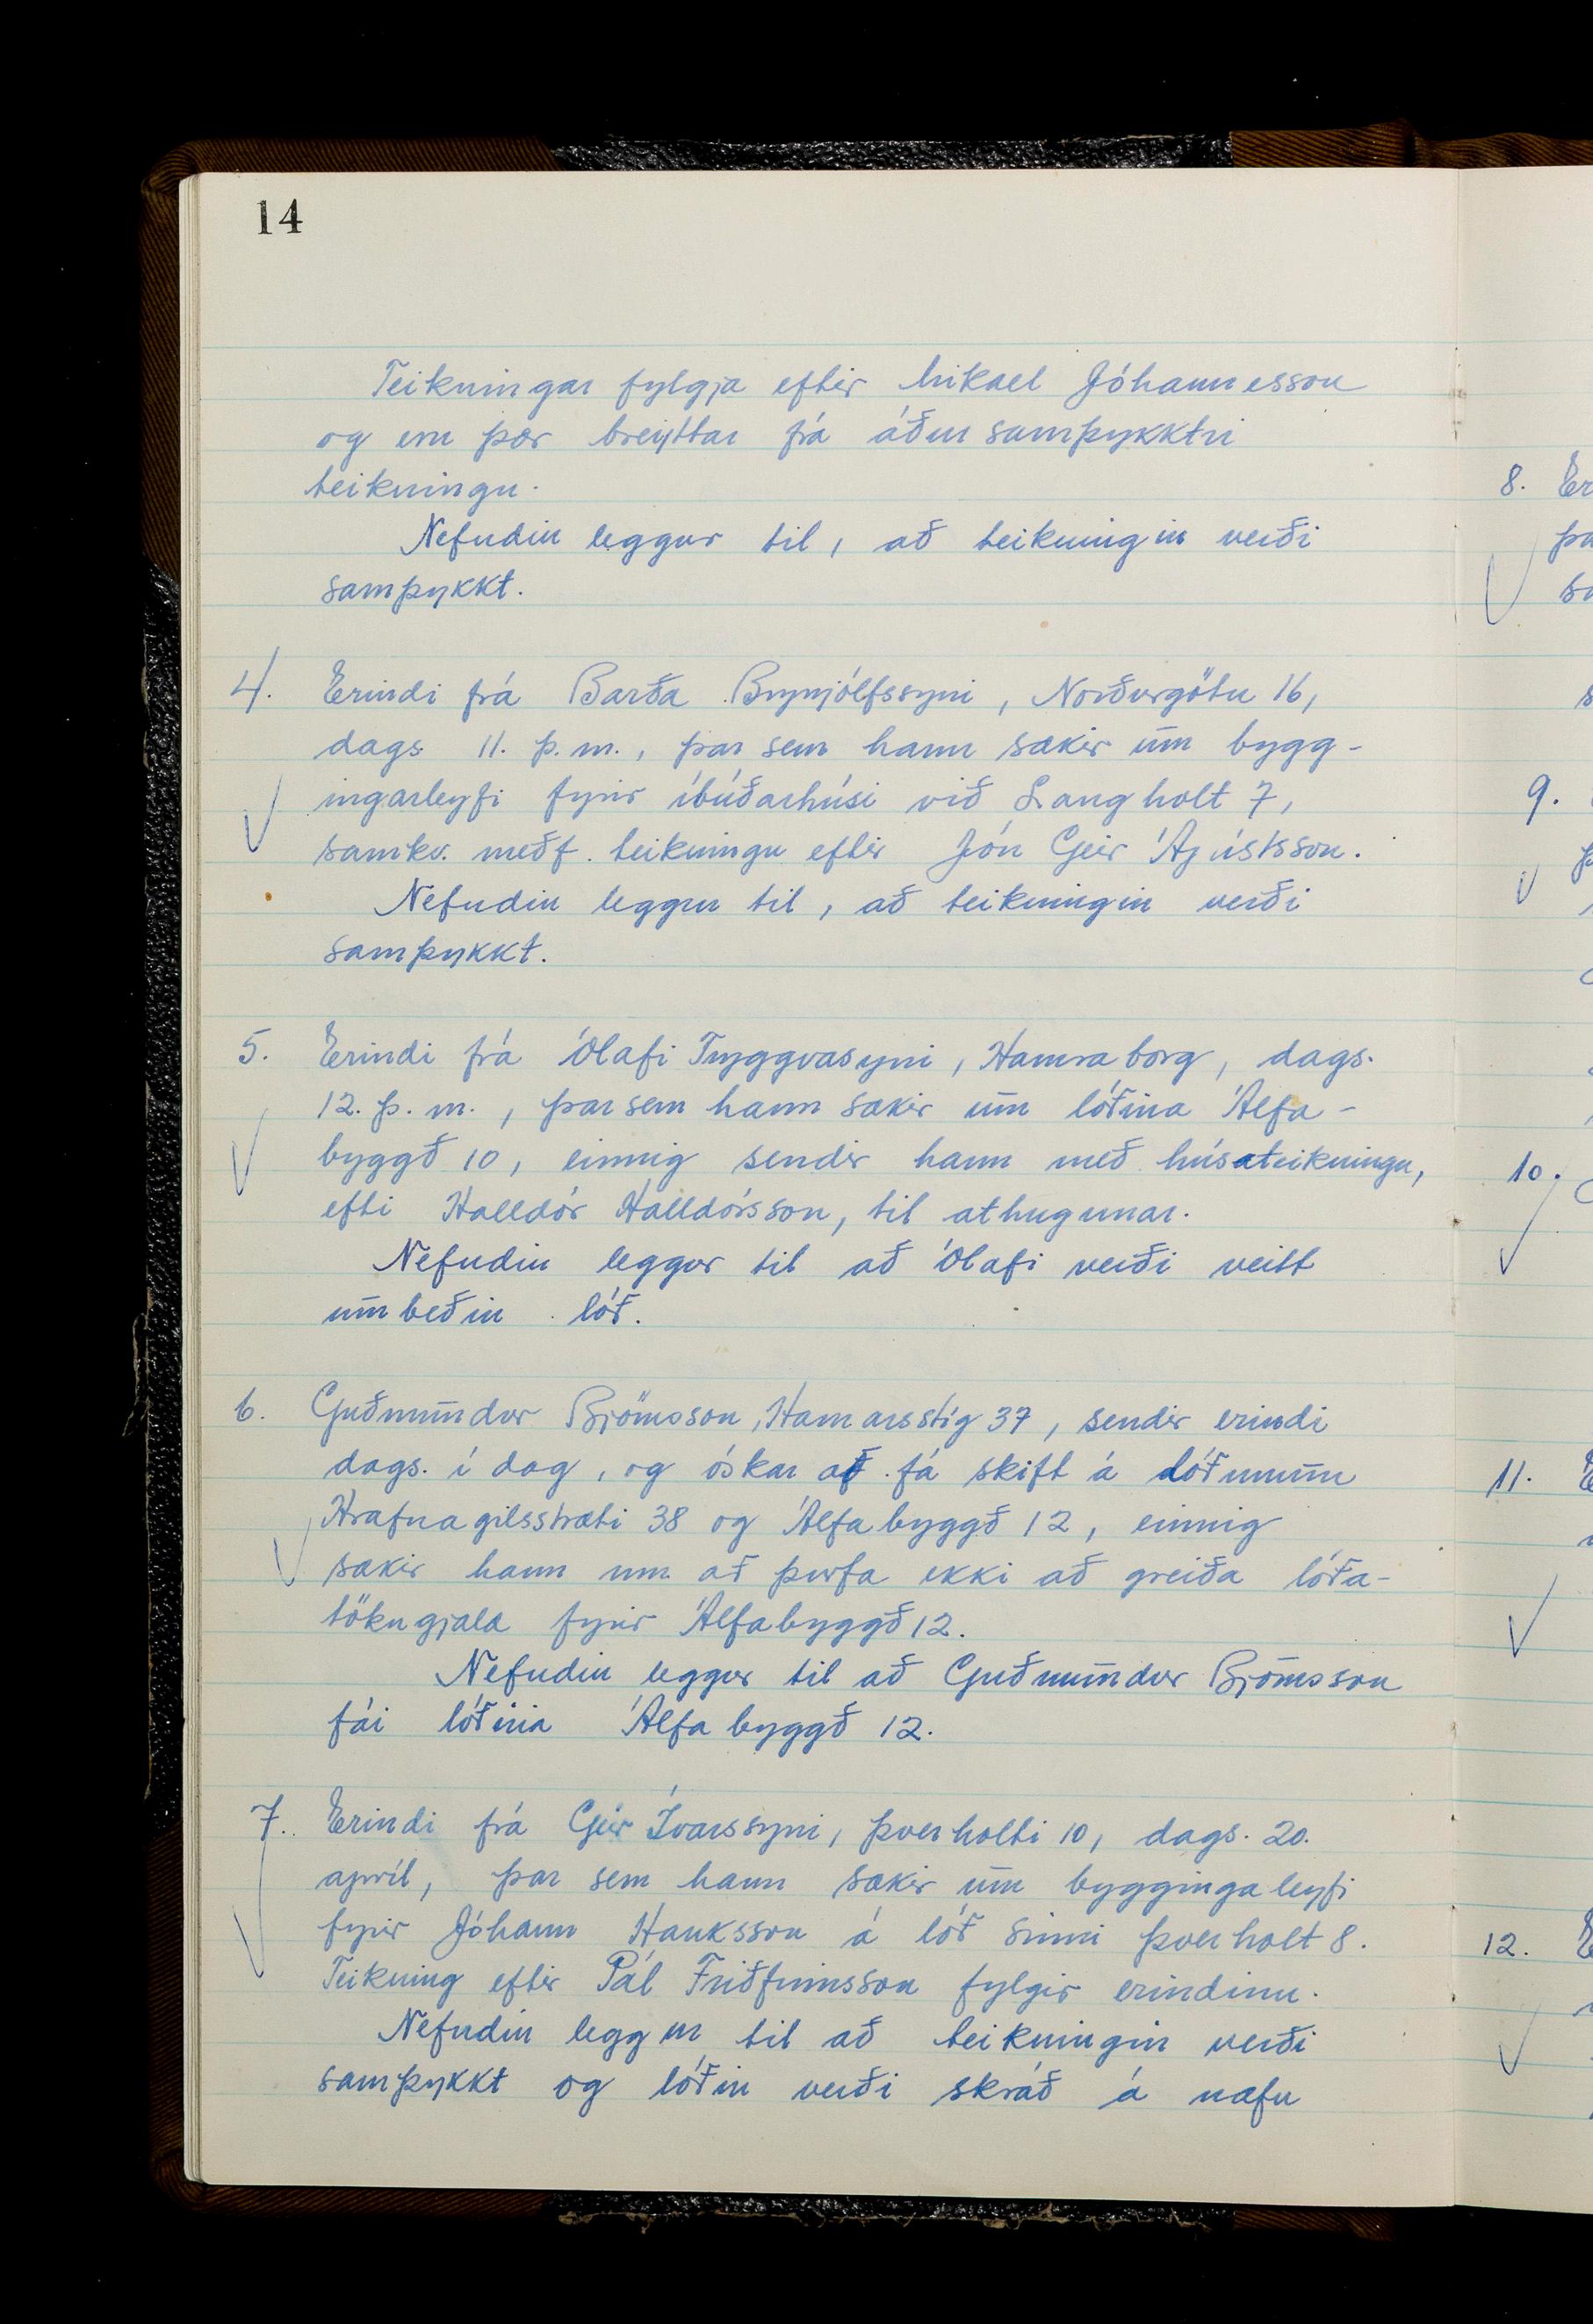 14
Teikningar fylgja eftir Mikael Jóhannesson
og eru þær breyttar frá áður samþykktri
teikningu.
Nefndin leggur til, að teikningin verði
samþykkt.
4. Erindi frá Barða Brynjólfssyni, Norðurgötu 16,
dags. 11. þ.m., þar sem hann sækir um bygg-
ingarleyfi fyrir íbúðarhúsi við Langholt 7,
samkv. meðf. teikningu eftir Jón Geir Ágústsson.
Nefndin leggur til, að teikningin verði
samþykkt.
5. Erindi frá Ólafi Tryggvasyni, Hamraborg, dags.
12. þ.m., þar sem hann sækir um lóðina Álfa-
byggð 10, einnig sendir hann með húsateikningu,
efti Halldór Halldórsson, til athugunar.
Nefndin leggur til að Ólafi verði veitt
umbeðin lóð.
6. Guðmundur Björnsson, Hamarsstíg 37, sendir erindi
dags. í dag, og óskar að fá skift á lóðunum
Hrafnagilsstræti 38 og Álfabyggð 12, einnig
sækir hann um að þurfa ekki að greiða lóða-
tökugjald fyrir Álfabyggð 12.
Nefndin leggur til að Guðmundur Björnsson
fái lóðina Álfabyggð 12.
7. Erindi frá Geir Ívarssyni, Þverholti 10, dags. 20.
apríl, þar sem hann sækir um byggingaleyfi
fyrir Jóhann Hauksson á lóð sinni Þverholt 8.
Teikning eftir Pál Friðfinnsson fylgir erindinu.
Nefndin leggur til að teikningin verði
samþykkt og lóðin verði skráð á nafn
8. Er
9.
10.
11. E
12. E